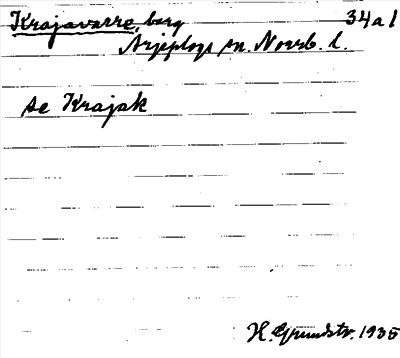 Krajavarre, berg 34a1
Arjeplogs sn. Norrb. l.
se Krajak
H. Grundstr. 1935